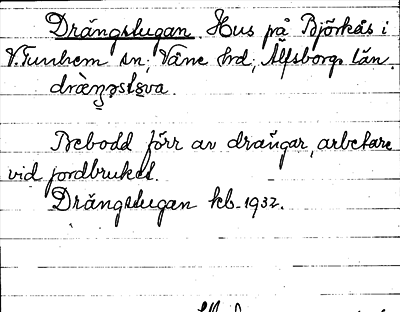 Drängstugan. Hus på Björkås i
V. Tunhem sn, Väne hd, Älfsborgs län.
Bebodd förr av drängar, arbetare
vid jordbruket.
Drängstugan kb 1932.